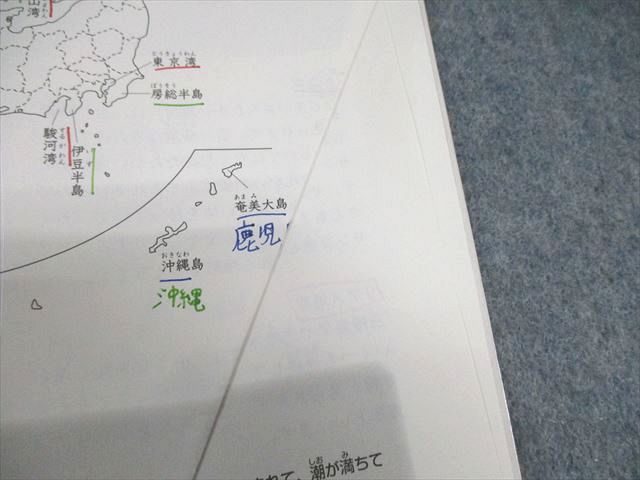 山湾
わん
とうきょうわん
東京湾
ぼうそう
房総半島
するがわん
駿河湾
いず
伊豆半島
あまみ
奄美大島
鹿児
おきなわ
沖縄島
沖縄
しお み
れて、潮が満ちて